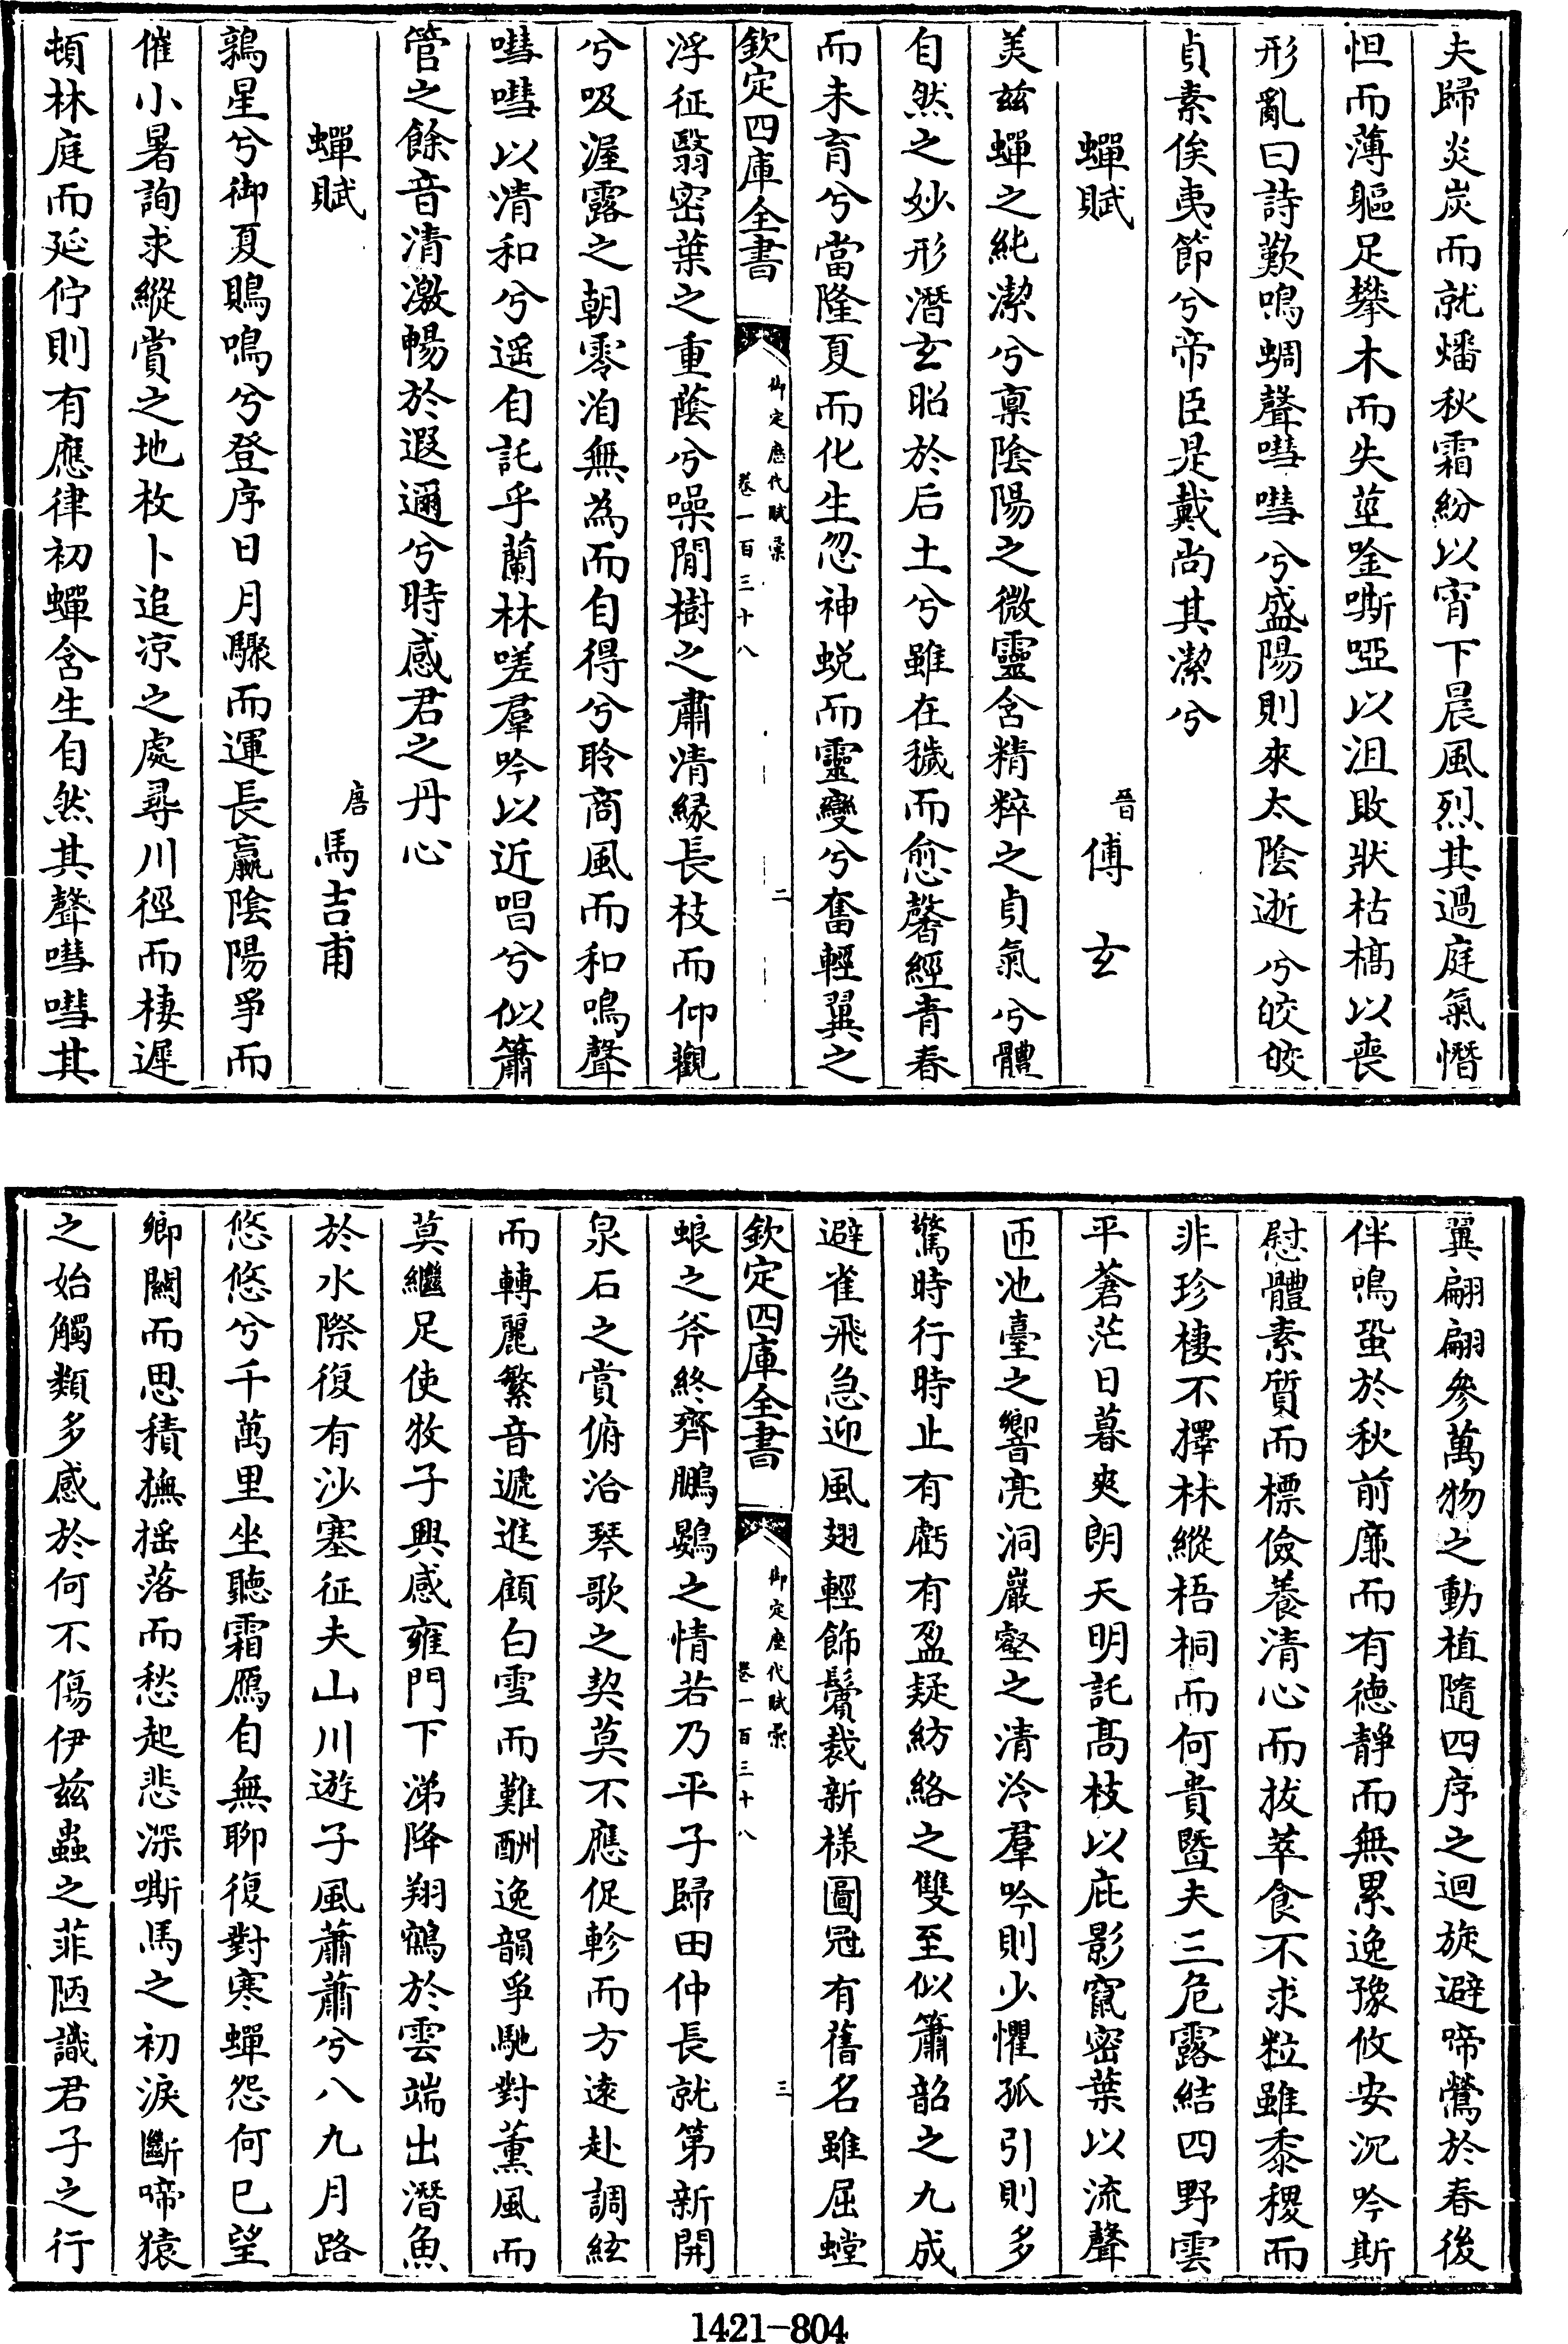 夫歸炎炭而就燔秋霜紛以宵下晨風烈其過庭氣憯
怛而薄軀足攀木而失莖唫嘶啞以沮敗狀枯槁以喪
形亂曰詩歎鳴蜩聲嘒嘒兮盛陽則來太陰逝兮皎皎
貞素侔夷節兮帝臣是戴尚其潔兮
蟬賦　晉傅玄
美兹蟬之純潔兮禀陰陽之微靈含精粹之貞氣兮體
自然之妙形潛玄昭於后土兮雖在穢而愈馨經青春
而未育兮當隆夏而化生忽神蜕而靈變兮奮輕翼之
欽定四庫全書　御定歷代賦彙　卷一百三十八　二
浮征翳密葉之重蔭兮噪閒樹之肅清緣長枝而仰觀
兮吸渥露之朝零洎無為而自得兮聆商風而和鳴聲
嘒嘒以清和兮遥自託乎蘭林嗟羣吟以近唱兮似簫
管之餘音清激暢於遐邇兮時感君之丹心
蟬賦　唐馬吉甫
鶉星兮御夏鵙鳴兮登序日月驟而運長嬴陰陽爭而
催小暑詢求縱賞之地枚卜追凉之處尋川徑而棲遲
頓林庭而延佇則有應律初蟬含生自然其聲嘒嘒其
翼翩翩參萬物之動植隨四序之迴旋避啼鶯於春後
伴鳴蛩於秋前廉而有德靜而無累逸豫攸安沉吟斯
慰體素質而標儉養清心而拔萃食不求粒雖黍稷而
非珍棲不擇林縱梧桐而何貴暨夫三危露結四野雲
平蒼茫日暮爽朗天明託高枝以庇影竄密葉以流聲
匝池臺之嚮亮洞巖壑之清泠羣吟則少懼孤引則多
驚時行時止有虧有盈疑紡絡之雙至似簫韶之九成
避雀飛急迎風翅輕飾鬢裁新樣圖冠有舊名雖屈螳
欽定四庫全書　御定歷代賦彙　卷一百三十八　三
蜋之斧終齊鵬鷃之情若乃平子歸田仲長就第新開
泉石之賞俯洽琴歌之契莫不應促軫而方逺赴調絃
而轉麗繁音遞進顧白雪而難酬逸韻爭馳對薰風而
莫繼足使牧子興感雍門下涕降翔鶴於雲端出潛魚
於水際復有沙塞征夫山川遊子風蕭蕭兮八九月路
悠悠兮千萬里坐聽霜鴈自無聊復對寒蟬怨何已望
鄉關而思積撫揺落而愁起悲深嘶馬之初淚斷啼猿
之始觸類多感於何不傷伊兹蟲之菲陋識君子之行
1421-804